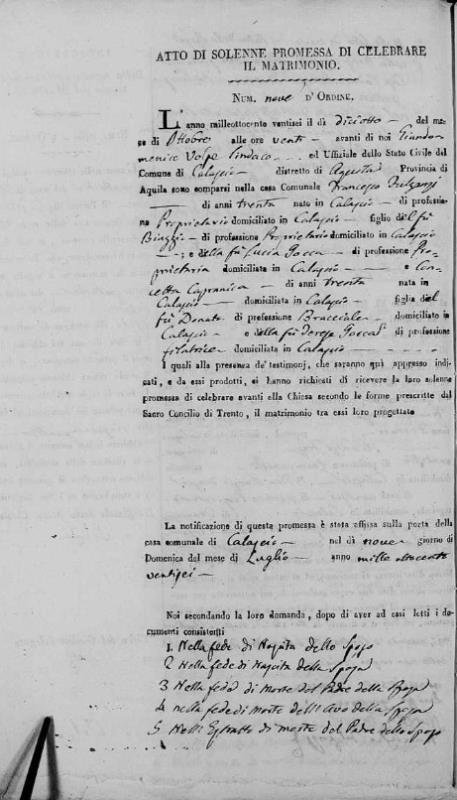 ATTO DI SOLENNE PROMESSA DI CELEBRARE
IL MATRIMONIO.
NUM. nove D' ORDINE.
L'anno milleottocento ventisei il dì diciotto del me-
se di Ottobre alle ore venti avanti di noi Giando-
menico Volpe Sindaco ed Uffiziale dello Stato Civile del
Comune di Calascio distretto di Aquila Provincia di
Aquila sono comparsi nella casa Comunale Francesco
di anni trenta nato in Calascio di professio-
ne Proprietario domiciliato in Calascio figlio del fù
Biaggio di professione Proprietario domiciliato in Calascio
; e della fù Lucia di professione Pro-
prietaria domiciliata in Calascio e Con-
cetta Capranica di anni trenta nata in
Calascio domiciliata in Calascio figlia del
fù Donato di professione Bracciale domiciliato in
Calascio e della fù Teresa di professione
filatrice domiciliata in Calascio
I quali alla presenza de' testimonj, che saranno quì appresso indi-
cati, e da essi prodotti, ci hanno richiesti di ricevere la loro solenne
promessa di celebrare avanti alla Chiesa secondo le forme prescritte dal
Sacro Concilio di Trento, il matrimonio tra essi loro progettato
La notificazione di questa promessa è stata affissa sulla porta della
casa comunale di Calascio nel dì nove giorno di
Domenica del mese di Luglio anno mille ottocento
ventisei
Noi secondando la loro domanda, dopo di aver ad essi letti i do-
cumenti consistenti
1 Nella fede di Nascita dello Sposo
2 Nella fede di Nascita della Sposa
3 Nella fede di Morte del Padre della Sposa
4 nella fede di Morte dell' Avo della Sposa
5 Nell' Estratto di morte del Padre dello Sposo